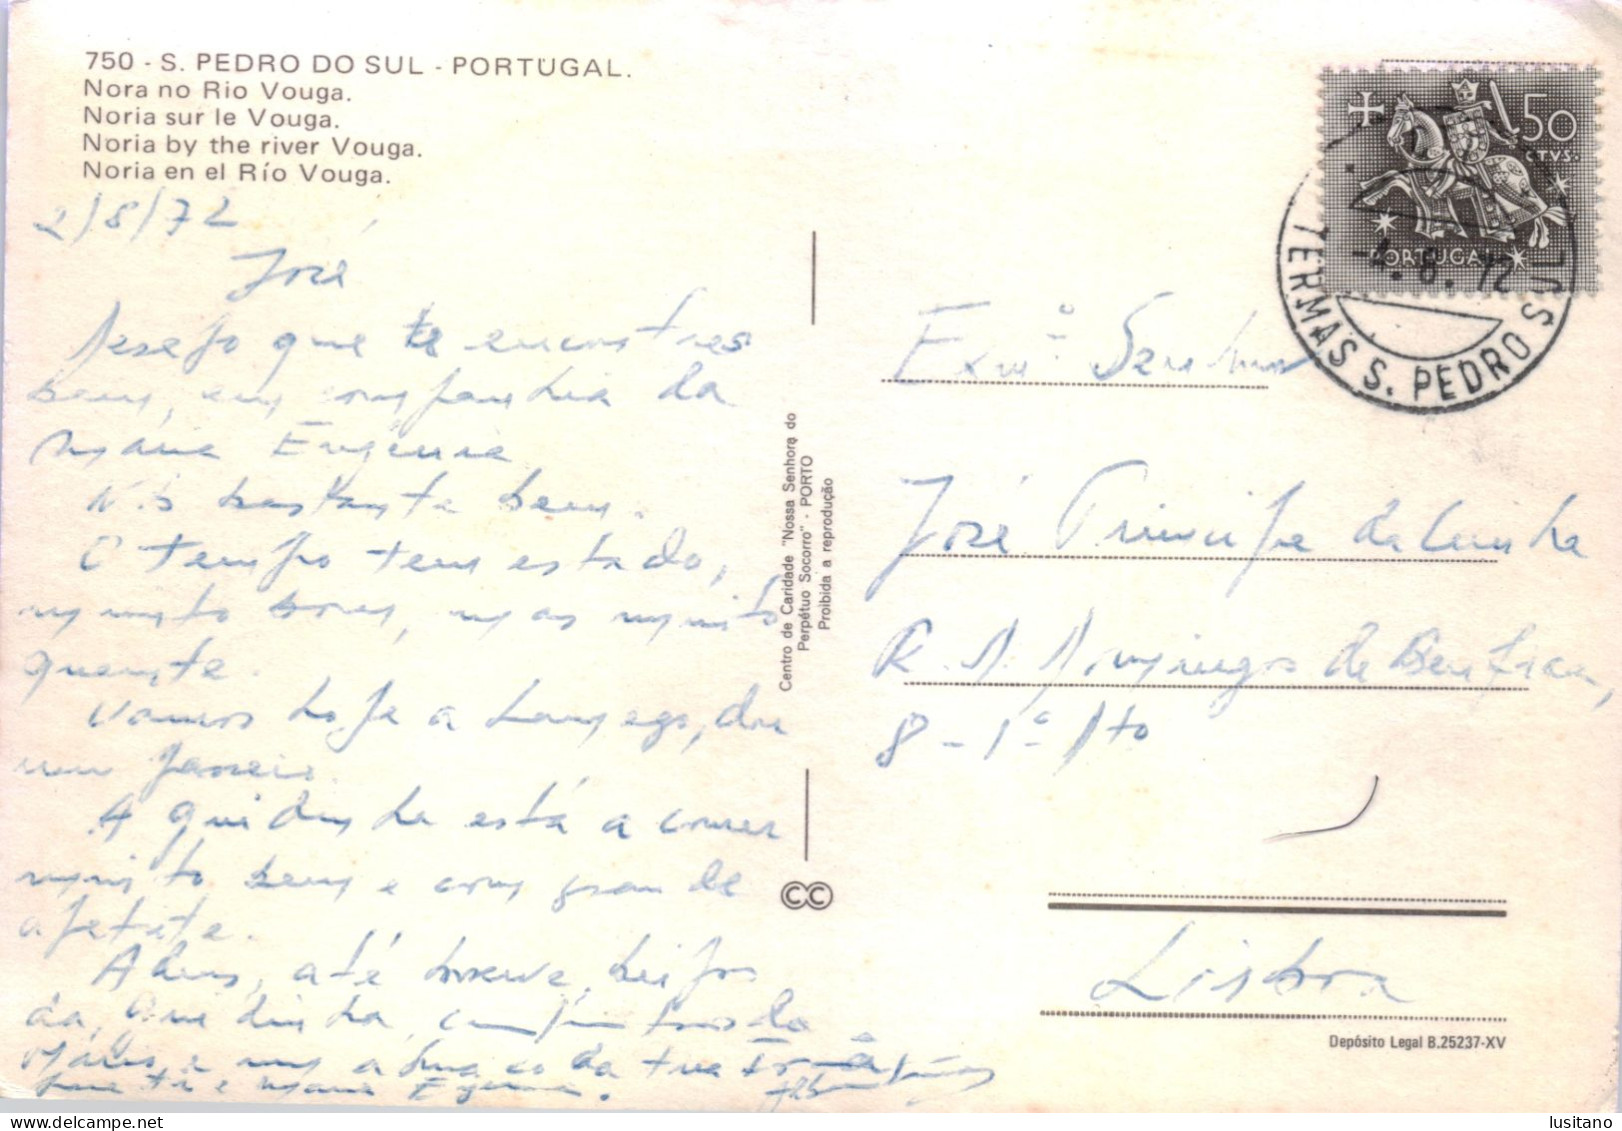 750 - S. PEDRO DO SUL - PORTUGAL.
Nora no Rio Vouga.
Noria sur le Vouga.
Noria by the river Vouga.
Noria en el Río Vouga.
2/8/72
José
Desejo que te encontres
bem, em companhia da
Mária Eugénia
Nós bastante bem.
O tempo tem estado,
muito bom, mas muito
quente.
Vamos hoje a Lamego, dar
um passeio.
A Guidinha está a comer
muito bem e com grande
apetite.
Adeus, até breve, beijos
da Guidinha, cumprimentos do
e um abraço da tua Irmã
para ti e Maria Eugénia.
Centro de Caridade "Nossa Senhora do
Perpétuo Socorro" - PORTO
Proibida a reprodução
CC
50
CTVS.
PORTUGAL
-4. 8. 72
TERMAS S. PEDRO SUL
Exmº. Senhor
José Principe da Cunha
R. S. Domingos de Benfica,
8 - 1º Dto
Lisboa
Depósito Legal B.25237-XV
lusitano